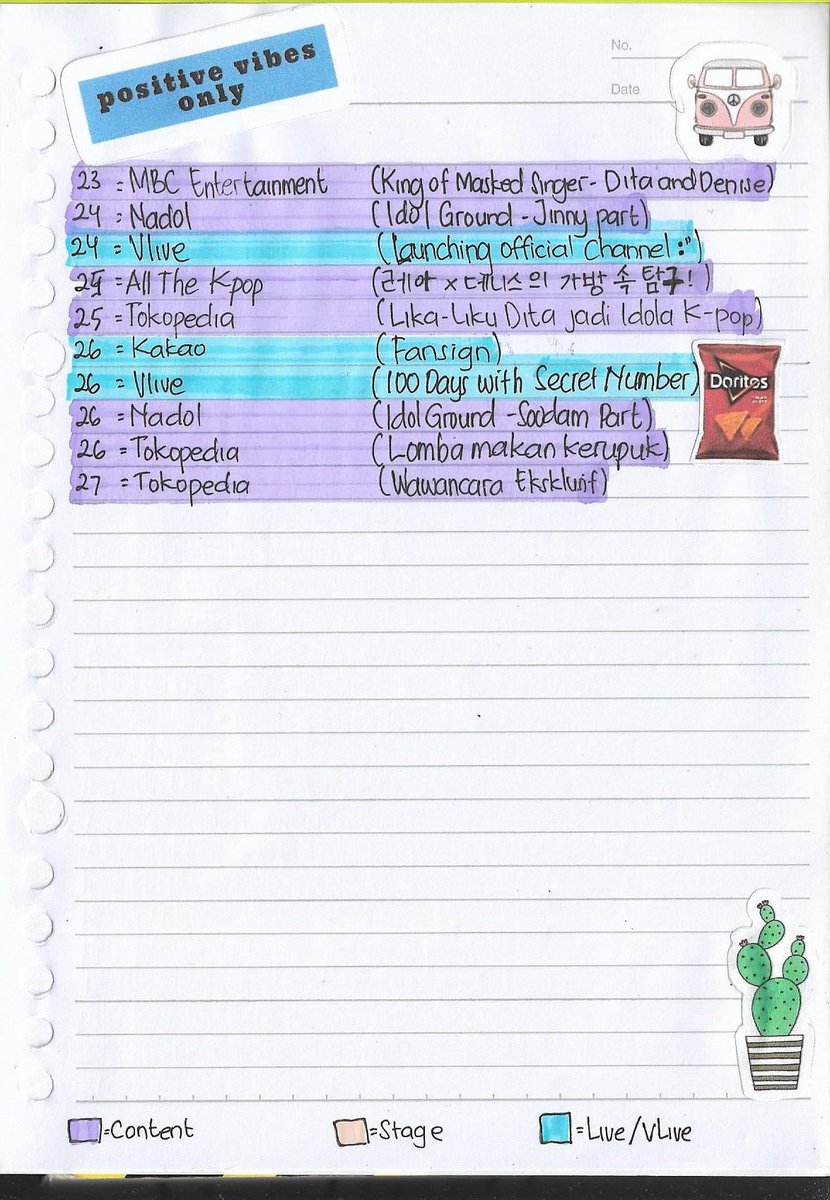 positive vibes
only
No.
Date
23 = MBC Entertainment (King of Masked Singer - Dita and Denise)
24 = Nadol (Idol Ground - Jinny part)
24 = Vlive (launching official channel :")
25 = All The Kpop (레아 x 데니스의 가방 속 탐구!)
25 = Tokopedia (Lika-Liku Dita jadi Idola K-pop)
26 = Kakao (Fansign)
26 = Vlive (100 Days with Secret Number)
Doritos
26 = Nadol (Idol Ground - Soodam Part)
26 = Tokopedia (Lomba makan kerupuk)
27 = Tokopedia (Wawancara Eksklusif)
=Content =Stage =Live/VLive